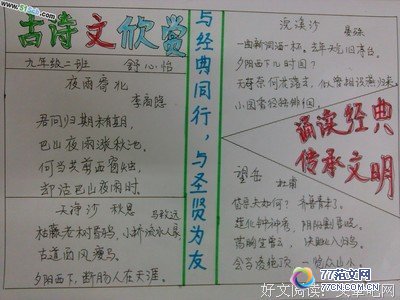 古诗文欣赏
九年级二班 舒心怡
夜雨寄北
李商隐
君问归期未有期,
巴山夜雨涨秋池。
何当共剪西窗烛,
却话巴山夜雨时。
天净沙 秋思
马致远
枯藤老树昏鸦, 小桥流水人家
古道西风瘦马。
夕阳西下, 断肠人在天涯。
与经典同行,与圣贤为友
浣溪沙
晏殊
一曲新词酒一杯。去年天气旧亭台。
夕阳西下几时回?
无可奈何花落去, 似曾相识燕归来。
小园香径独徘徊。
诵读经典
传承文明
望岳
杜甫
岱宗夫如何? 齐鲁青未了。
造化钟神秀, 阴阳割昏晓。
荡胸生曾云, 决眦入归鸟。
会当凌绝顶, 一览众山小。
77范文网
好文阅读